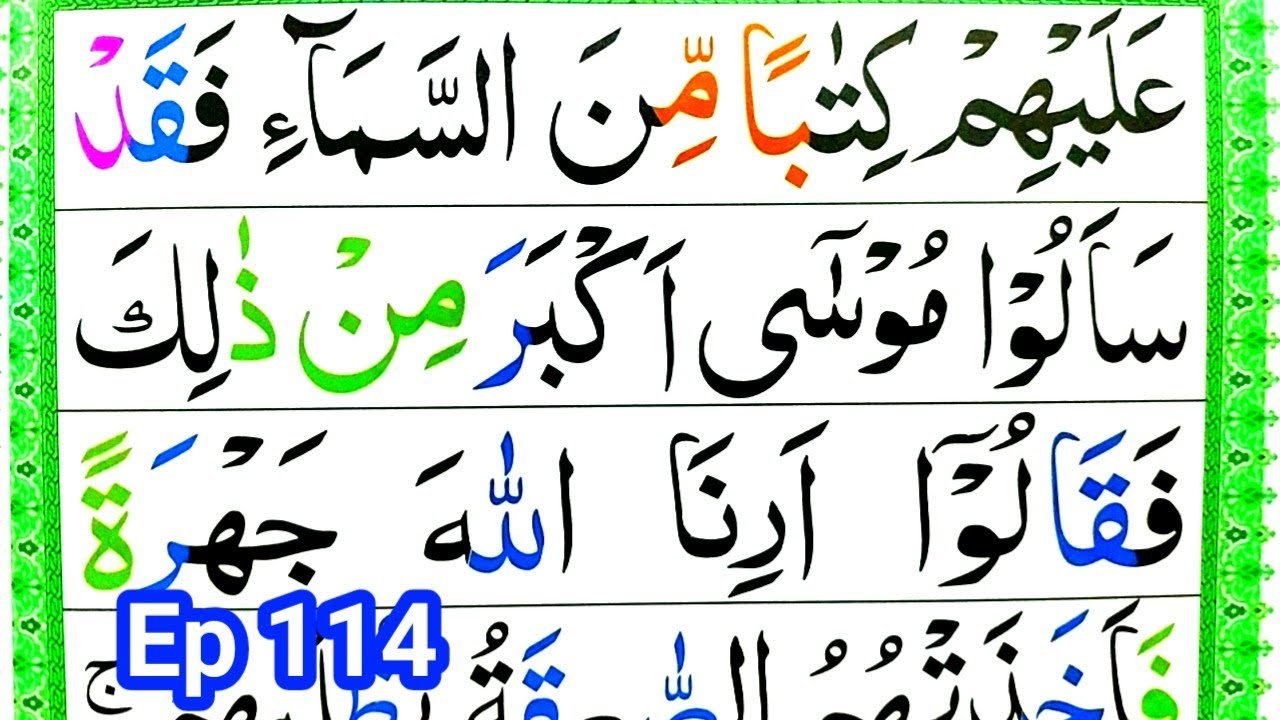 عَلَيْهِمْ كِتٰبًا مِّنَ السَّمَآءِ فَقَدْ
سَاَلُوْا مُوْسٰٓى اَكْبَرَ مِنْ ذٰلِكَ
فَقَالُوْٓا اَرِنَا اللّٰهَ جَهْرَةً
فَاَخَذَتْهُمُ الصّٰعِقَةُ بِظُلْمِهِمْ ج
Ep 114